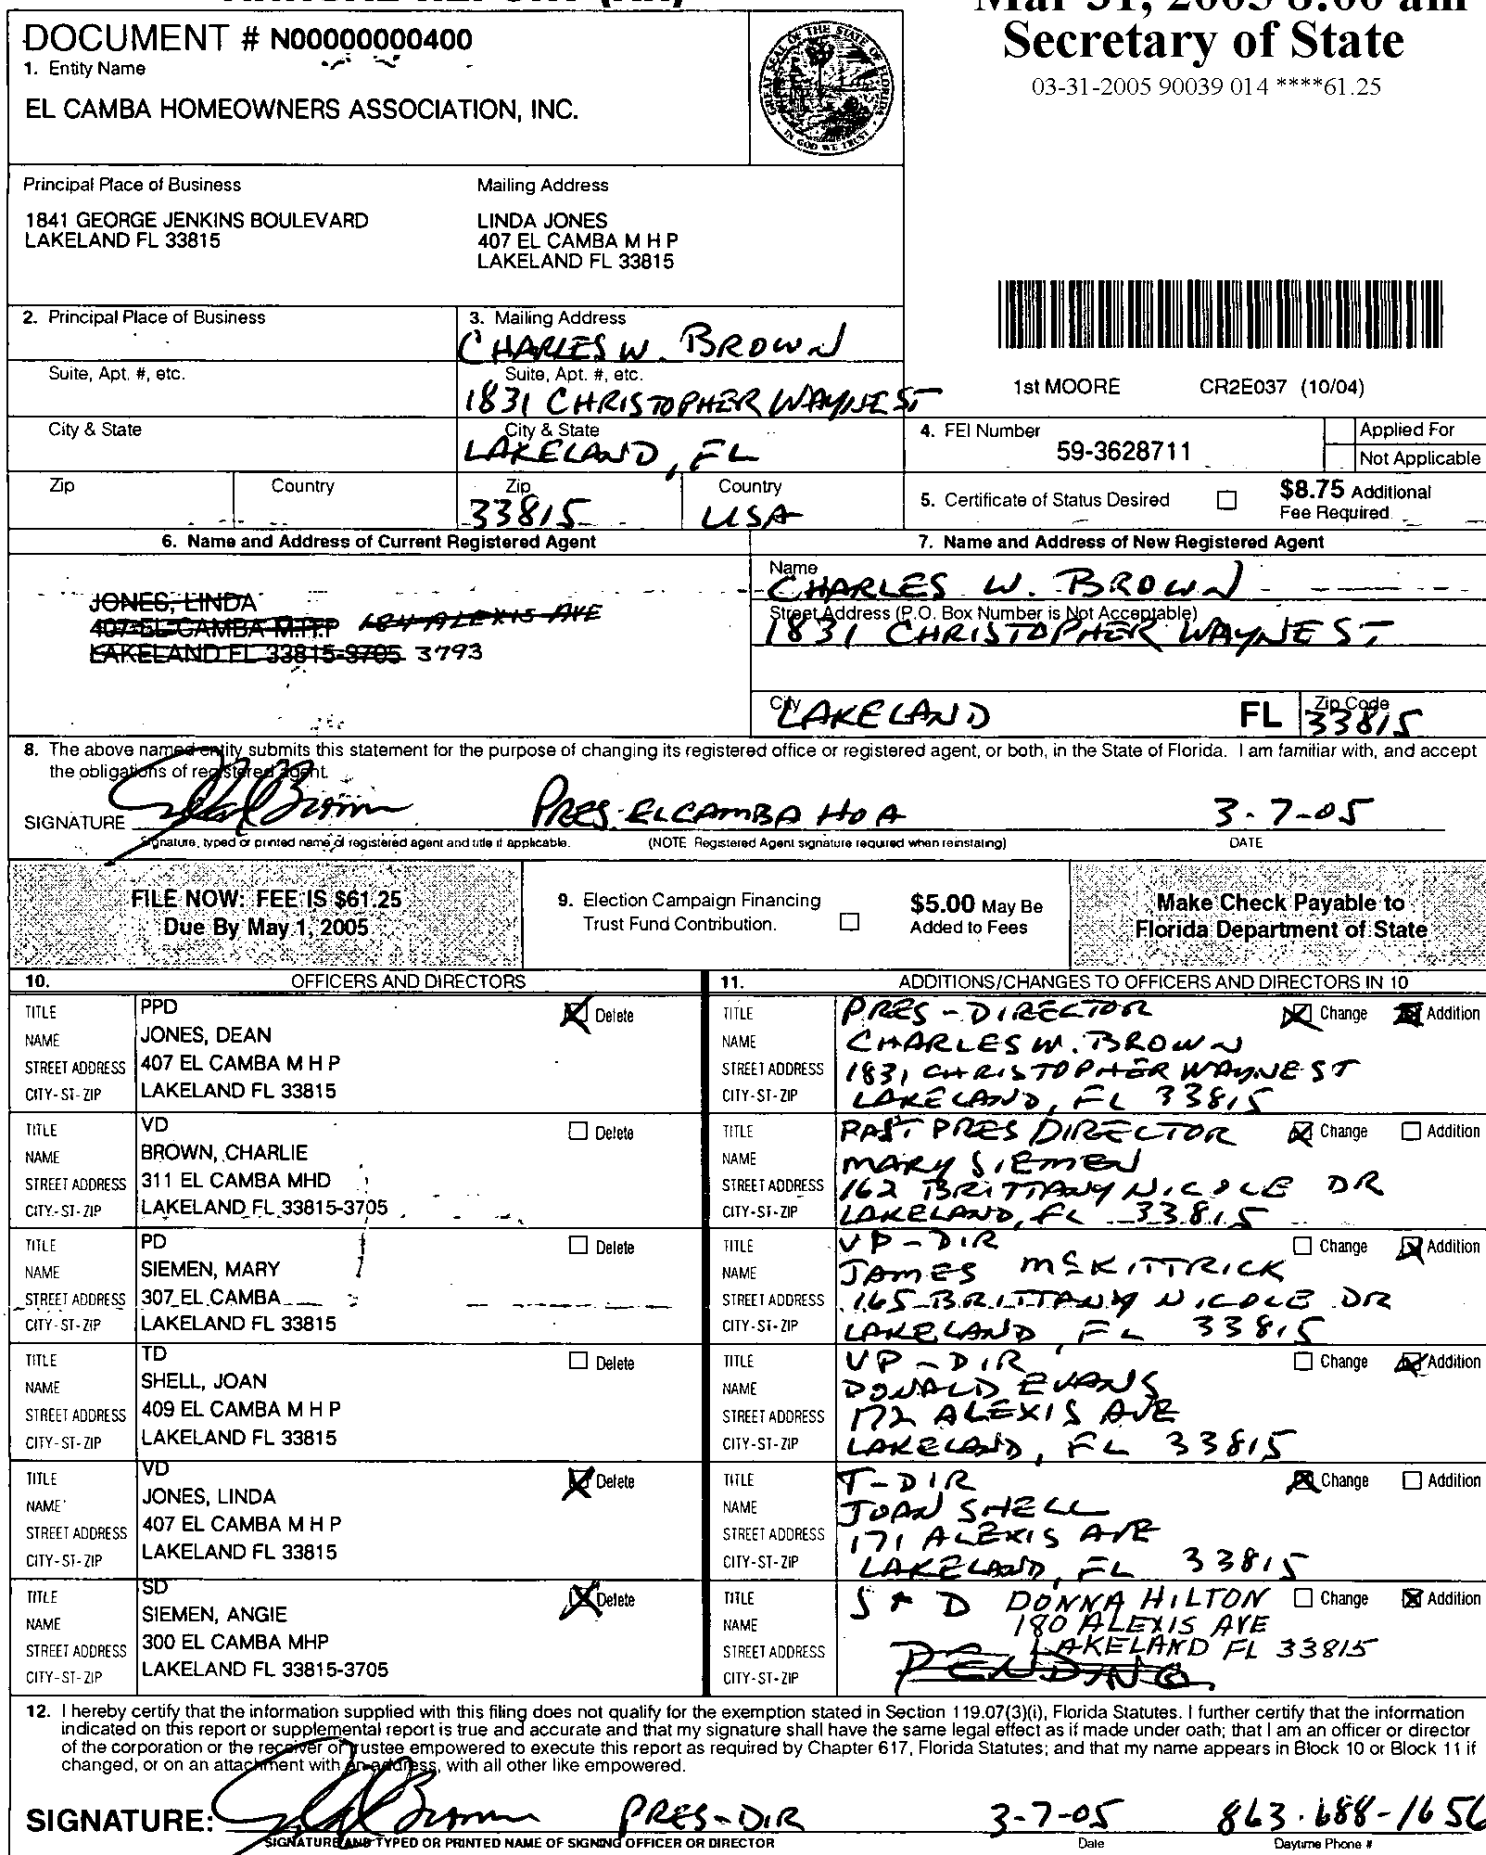 ANNUAL REPORT (AR)
Mar 31, 2005 8:00 am
Secretary of State
03-31-2005 90039 014 ****61.25
DOCUMENT # N00000000400
1. Entity Name
EL CAMBA HOMEOWNERS ASSOCIATION, INC.
GREAT SEAL OF THE STATE OF FLORIDA
IN GOD WE TRUST
Principal Place of Business
1841 GEORGE JENKINS BOULEVARD
LAKELAND FL 33815
Mailing Address
LINDA JONES
407 EL CAMBA M H P
LAKELAND FL 33815
2. Principal Place of Business
Suite, Apt. #, etc.
City & State
Zip Country
3. Mailing Address
CHARLES W. BROWN
Suite, Apt. #, etc.
1831 CHRISTOPHER WAYNE ST
City & State
LAKELAND, FL
Zip Country
33815 USA
1st MOORE CR2E037 (10/04)
4. FEI Number
59-3628711
Applied For
Not Applicable
5. Certificate of Status Desired
$8.75 Additional
Fee Required
6. Name and Address of Current Registered Agent
JONES, LINDA
407 EL CAMBA M.H.P 184 ALEXIS AVE
LAKELAND FL 33815-9705 3793
7. Name and Address of New Registered Agent
Name
CHARLES W. BROWN
Street Address (P.O. Box Number is Not Acceptable)
1831 CHRISTOPHER WAYNE ST
City
LAKELAND FL
Zip Code
33815
8. The above named entity submits this statement for the purpose of changing its registered office or registered agent, or both, in the State of Florida. I am familiar with, and accept
the obligations of registered agent.
SIGNATURE PRES. ELCAMBA HOA 3-7-05
Signature, typed or printed name of registered agent and title if applicable. (NOTE Registered Agent signature required when reinstating) DATE
FILE NOW: FEE IS $61.25
Due By May 1, 2005
9. Election Campaign Financing
Trust Fund Contribution.
$5.00 May Be
Added to Fees
Make Check Payable to
Florida Department of State
10. OFFICERS AND DIRECTORS
TITLE PPD Delete
NAME JONES, DEAN
STREET ADDRESS 407 EL CAMBA M H P
CITY-ST-ZIP LAKELAND FL 33815
TITLE VD Delete
NAME BROWN, CHARLIE
STREET ADDRESS 311 EL CAMBA MHD
CITY-ST-ZIP LAKELAND FL 33815-3705
TITLE PD Delete
NAME SIEMEN, MARY
STREET ADDRESS 307 EL CAMBA
CITY-ST-ZIP LAKELAND FL 33815
TITLE TD Delete
NAME SHELL, JOAN
STREET ADDRESS 409 EL CAMBA M H P
CITY-ST-ZIP LAKELAND FL 33815
TITLE VD Delete
NAME JONES, LINDA
STREET ADDRESS 407 EL CAMBA M H P
CITY-ST-ZIP LAKELAND FL 33815
TITLE SD Delete
NAME SIEMEN, ANGIE
STREET ADDRESS 300 EL CAMBA MHP
CITY-ST-ZIP LAKELAND FL 33815-3705
11. ADDITIONS/CHANGES TO OFFICERS AND DIRECTORS IN 10
TITLE PRES - DIRECTOR Change Addition
NAME CHARLES W. BROWN
STREET ADDRESS 1831 CHRISTOPHER WAYNE ST
CITY-ST-ZIP LAKELAND, FL 33815
TITLE PAST PRES DIRECTOR Change Addition
NAME MARY SIEMEN
STREET ADDRESS 162 BRITTANY NICOLE DR
CITY-ST-ZIP LAKELAND, FL 33815
TITLE VP - DIR Change Addition
NAME JAMES MCKITTRICK
STREET ADDRESS 165 BRITTANY NICOLE DR
CITY-ST-ZIP LAKELAND FL 33815
TITLE VP - DIR Change Addition
NAME DONALD EVANS
STREET ADDRESS 172 ALEXIS AVE
CITY-ST-ZIP LAKELAND, FL 33815
TITLE T-DIR Change Addition
NAME JOAN SHELL
STREET ADDRESS 171 ALEXIS AVE
CITY-ST-ZIP LAKELAND, FL 33815
TITLE S + D DONNA HILTON Change Addition
NAME 180 ALEXIS AVE
STREET ADDRESS LAKELAND FL 33815
CITY-ST-ZIP PENDING
12. I hereby certify that the information supplied with this filing does not qualify for the exemption stated in Section 119.07(3)(i), Florida Statutes. I further certify that the information
indicated on this report or supplemental report is true and accurate and that my signature shall have the same legal effect as if made under oath; that I am an officer or director
of the corporation or the receiver or trustee empowered to execute this report as required by Chapter 617, Florida Statutes; and that my name appears in Block 10 or Block 11 if
changed, or on an attachment with an address, with all other like empowered.
SIGNATURE: PRES-DIR 3-7-05 863.688-1656
SIGNATURE AND TYPED OR PRINTED NAME OF SIGNING OFFICER OR DIRECTOR Date Daytime Phone #